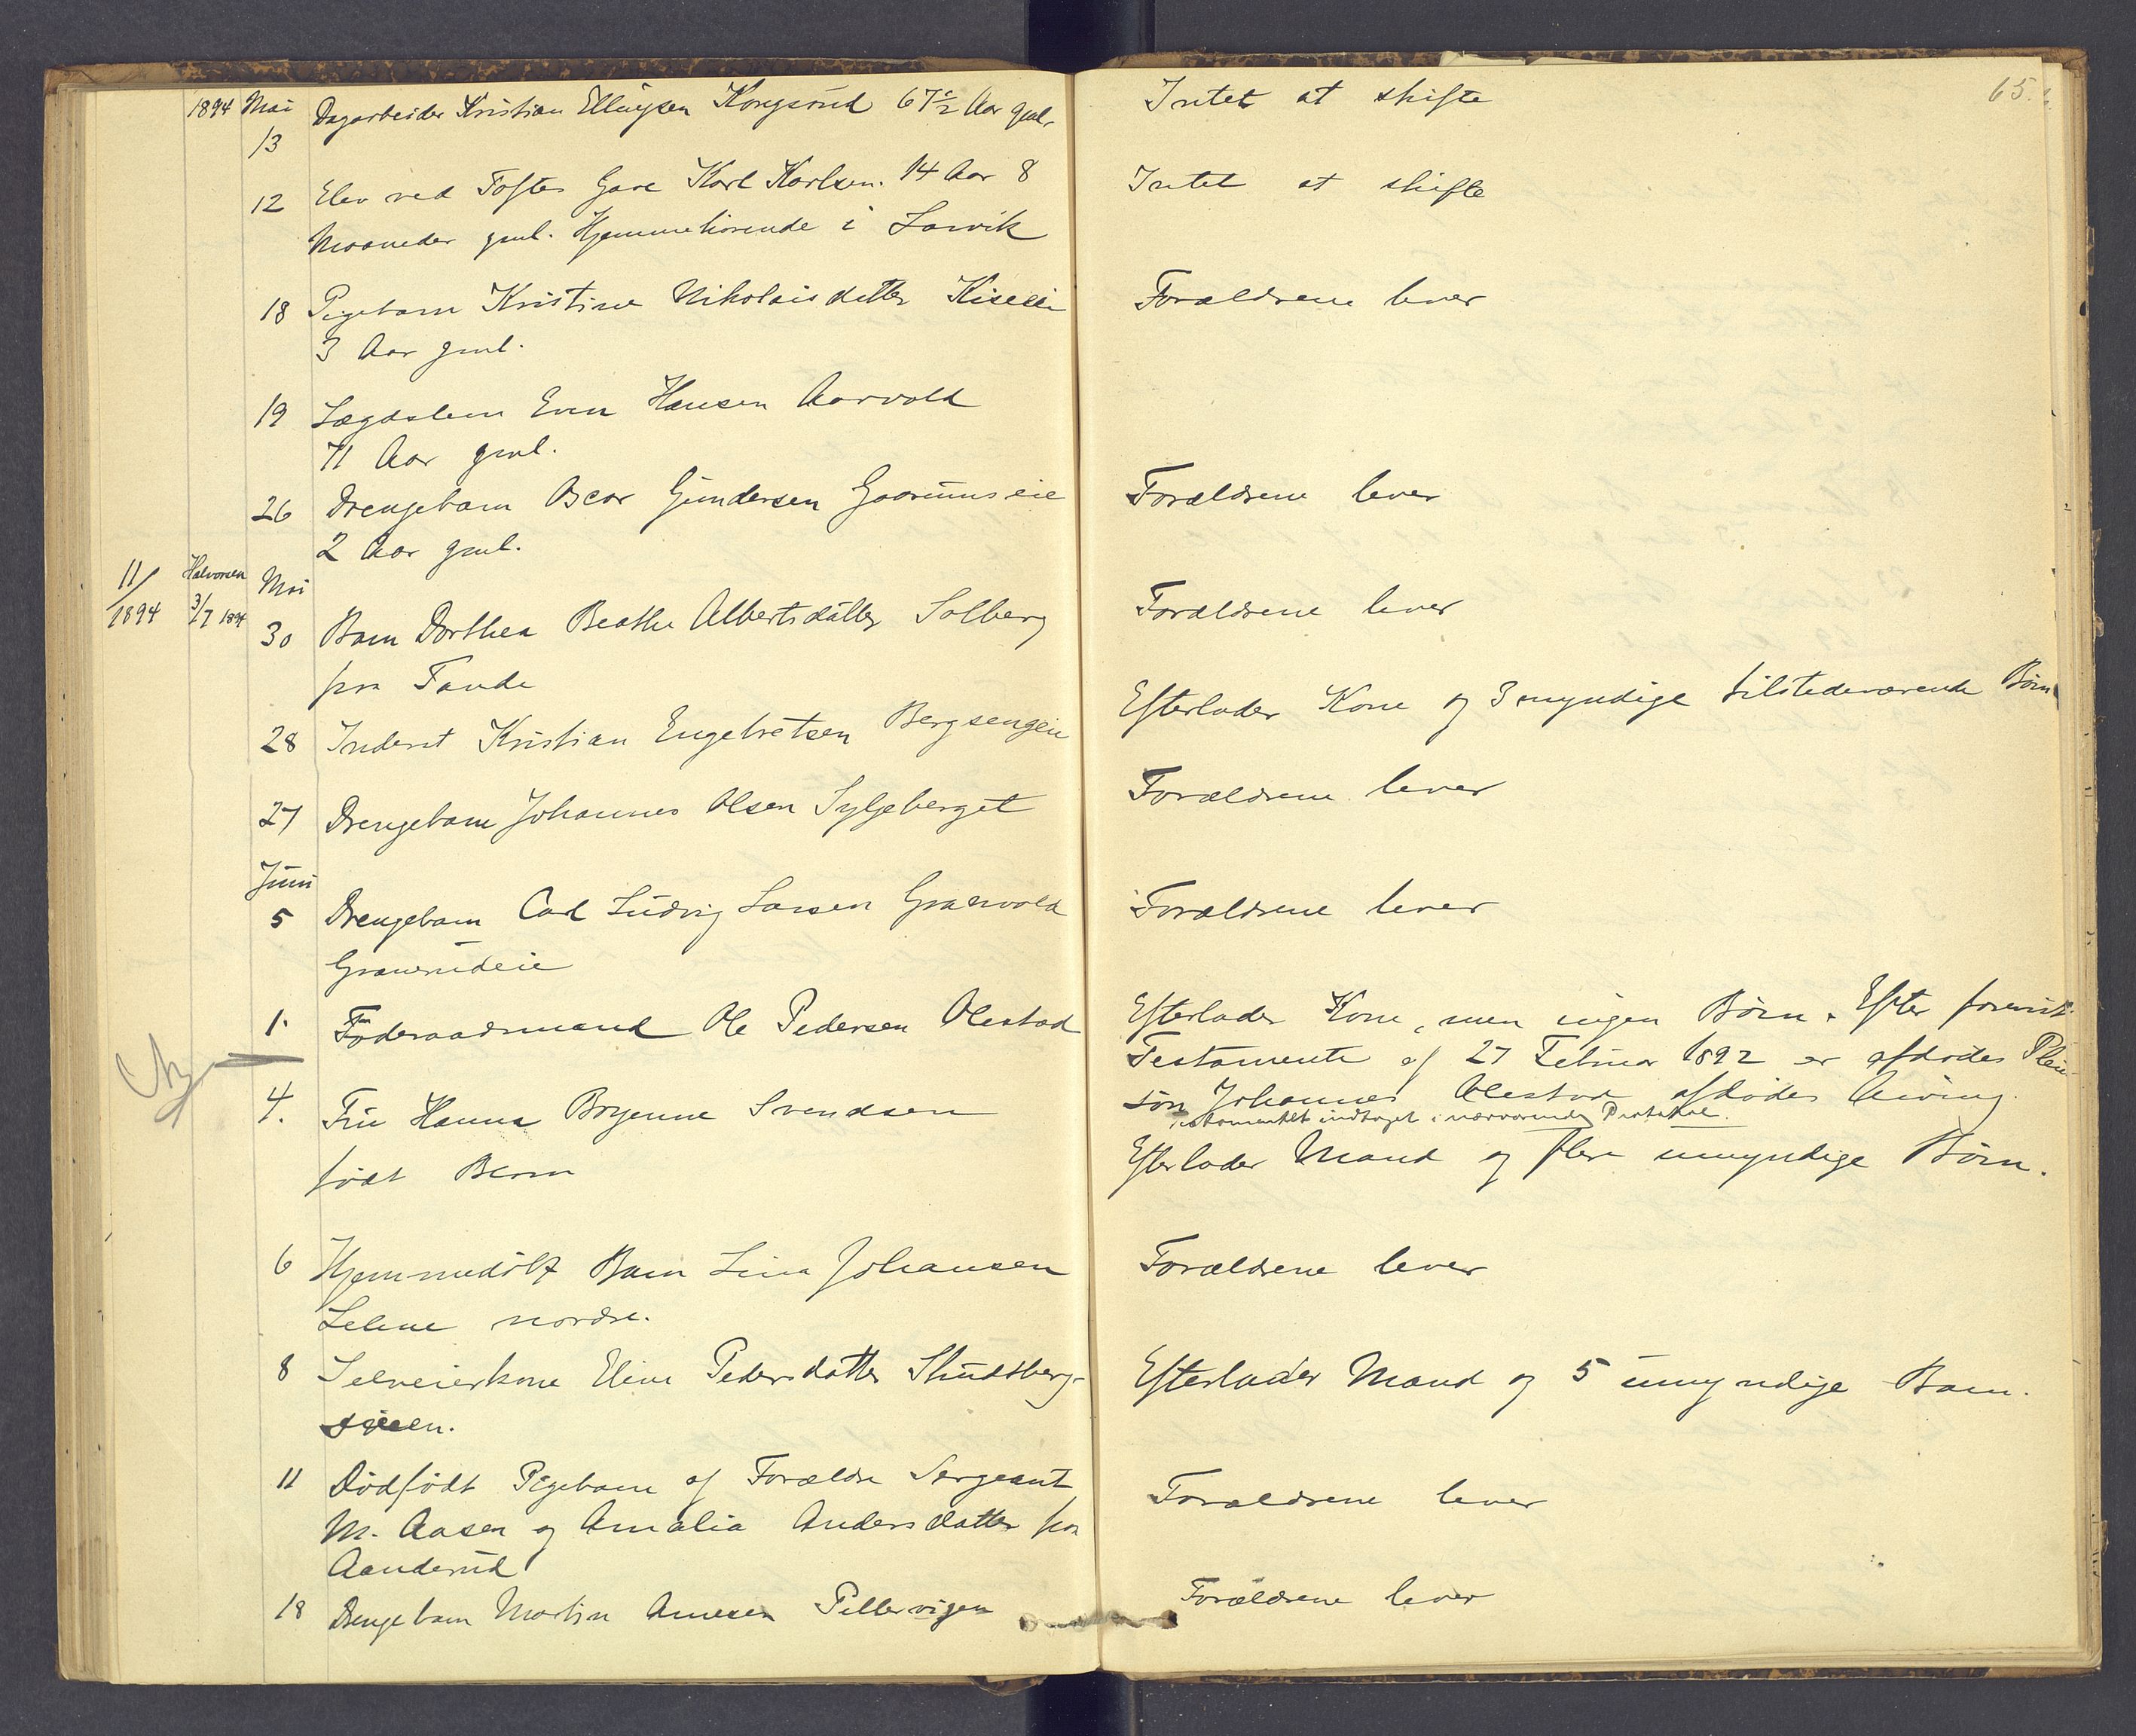 65.
1894 Mai
13 Dagarbeider Kristian Ellingsen Kongsrud 67 1/2 Aar gml. Intet at skifte
12 Elev ved Toftes Gave Karl Karlsen. 14 Aar 8 Intet at skifte
Maaneder gml. Hjemmehörende i Larvik
18 Pigebarn Kristine Nikolaisdatter Forældrene lever
3 Aar gml.
19 Lægdslem Even Hansen Aarvold
71 Aar gml.
26 Drengebarn Oscar Gundersen Gaarumseie Forældrene lever
2 Aar gml.
11/1894 Halvorsen 3/7 1894 Mai
30 Barn Dorthea Beathe Albertsdatter Solberg Forældrene lever
fra Tande
28 Inderst Kristian Engebretsen Bergsengeie Efterlader Kone og 3 myndige tilstedeværende Börn
27 Drengebarn Johannes Olsen Syljeberget Forældrene lever
Juni
5 Drengebarn Carl Ludvig Larsen Granvold Forældrene lever
Granerudeie
1. Föderaadsmand Ole Pedersen Olestad Efterlader Kone, men ingen Börn. Efter forevist
Testamente af 27 Februar 1892 er afdödes Pleie-
sön Johannes Olestad afdödes Arving.
Testamentet indtaget i nærværende Protokol.
4. Fru Hanna Svendsen Efterlader Mand og flere umyndige Börn.
född
6 Hjemmedöbt Barn Lina Johansen Forældrene lever
nordre.
8 Selveierkone Eline Pedersdatter Skudsberg- Efterlader Mand og 5 umyndige Barn.
11 Dödfödt Pigebarn af Forældre Sergeant Forældrene lever
M. Aasen og Amalia Andersdatter fra
Aanderud
18 Drengebarn Martin Arnesen Pillervigen Forældrene lever